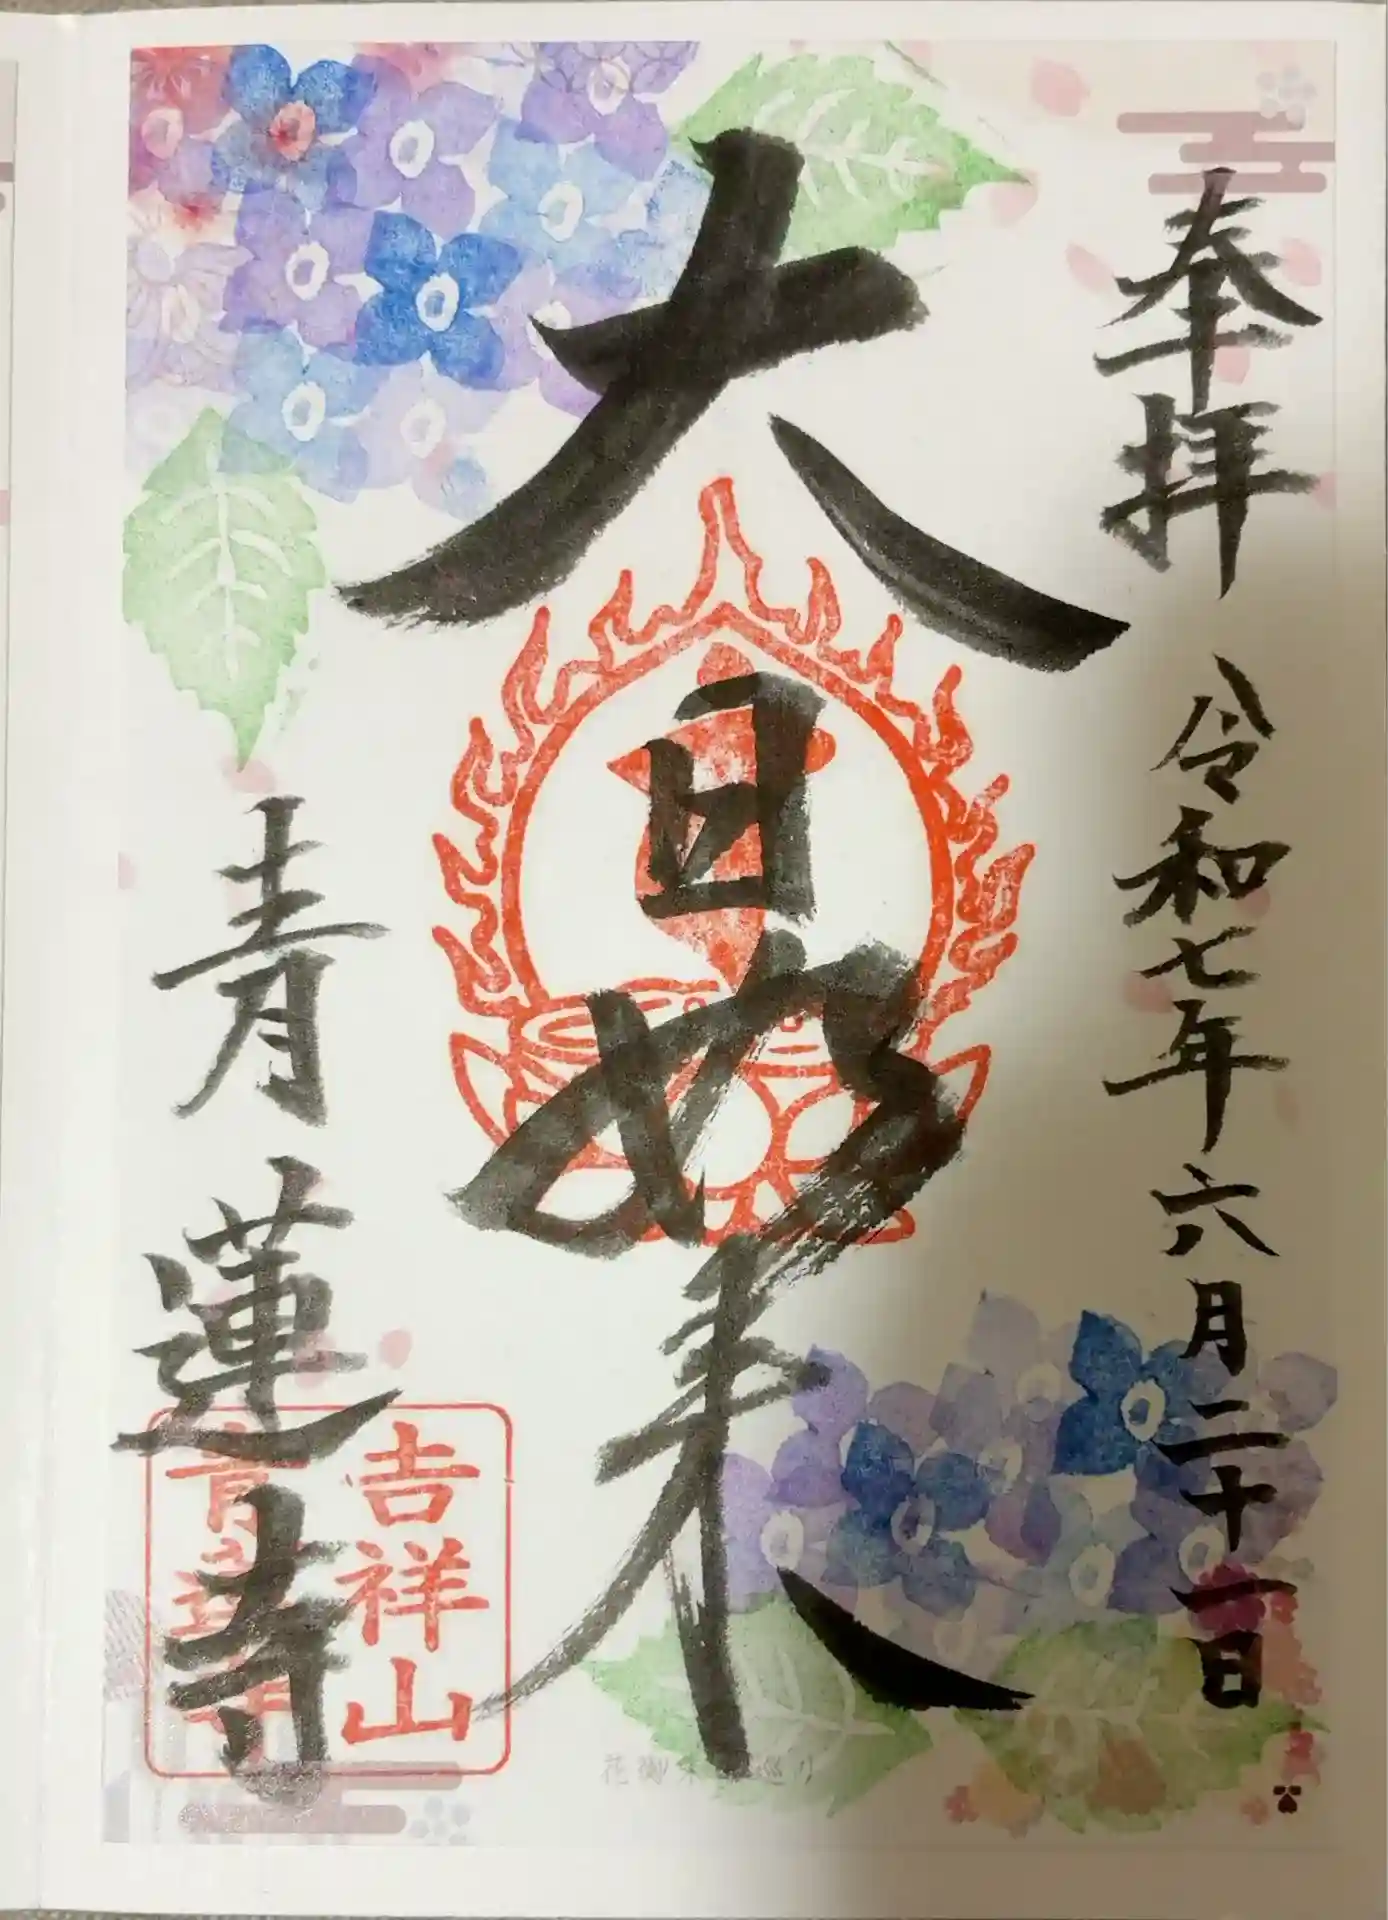 奉拝 令和七年六月二十一日
大日如来
青蓮寺
吉祥山
花御朱印巡り